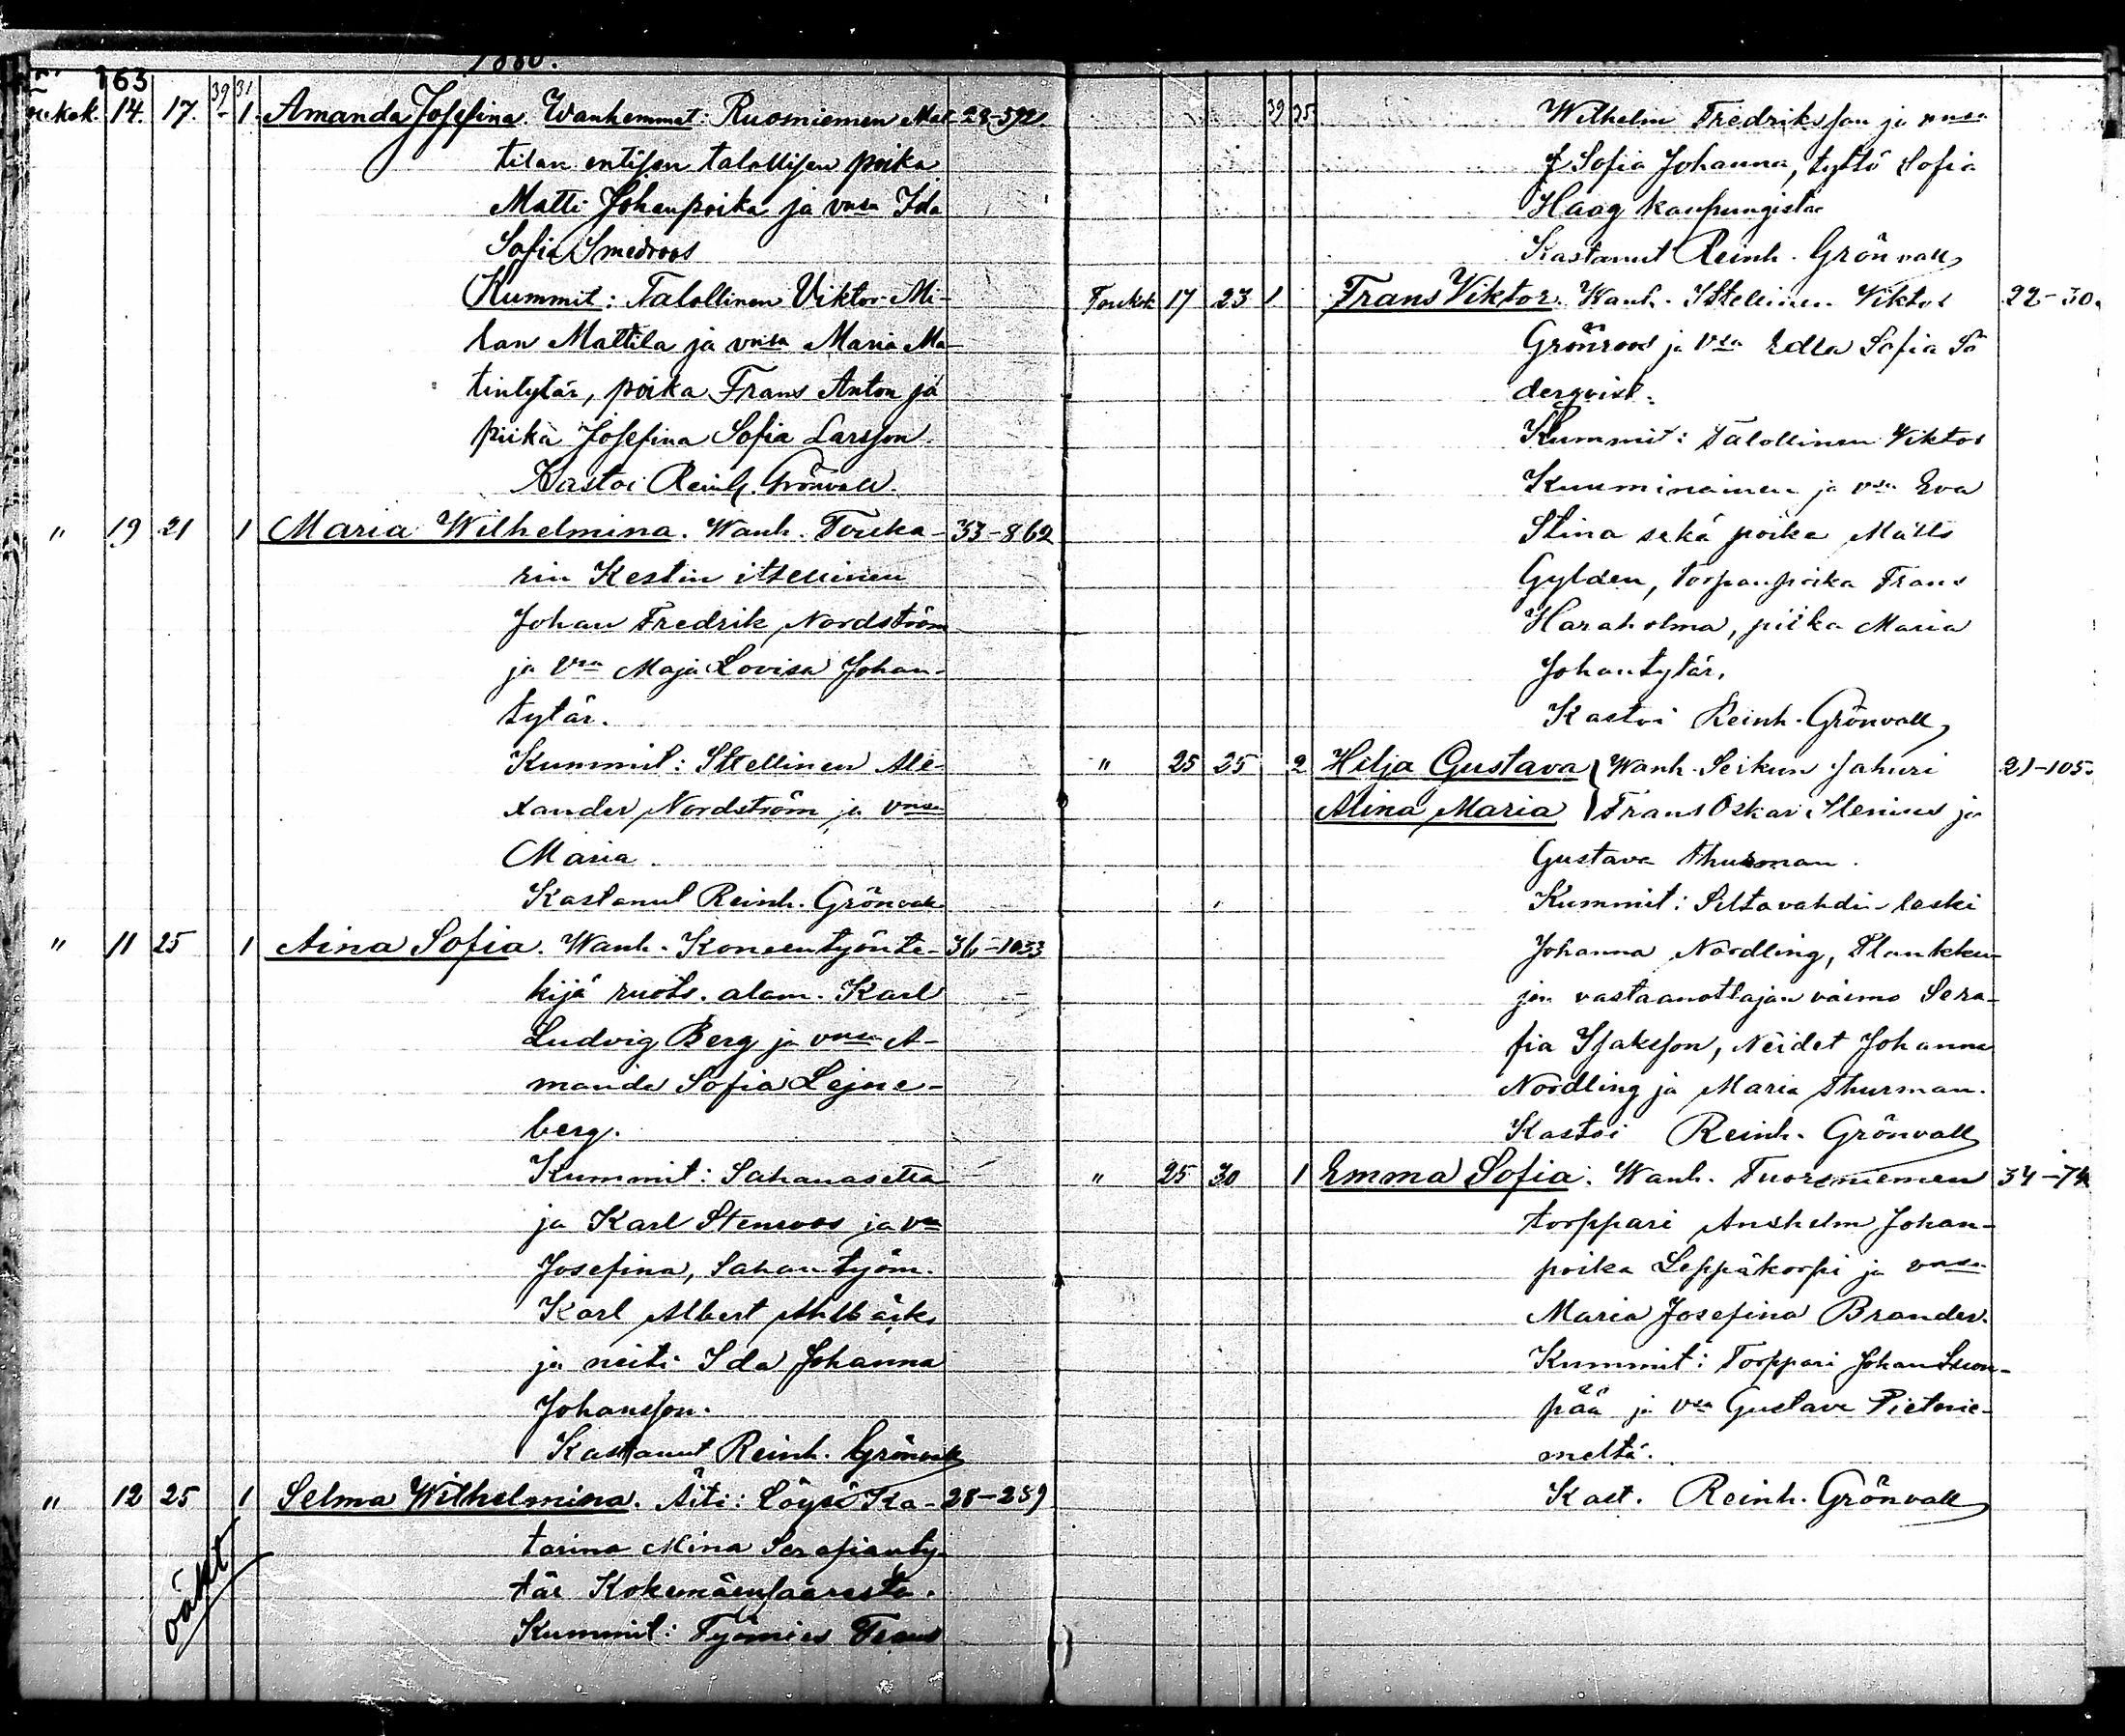 1880.
163
39 31
14. 17. - 1. Amanda Josefina. Wanhemmat: Ruosniemen Mat- 28-592.
tilan entisen talollisen poika
Matti Johanpoika ja vmsa Ida
Sofia Smedroos
Kummit: Talollinen Viktor Mi-
lan Mattila ja vmsa Maria Ma-
tintytär, poika Frans Anton ja
piika Josefina Sofia Larsson.
Kastoi Reinh. Grönvall.
" 19 21 1 Maria Wilhelmina. Wanh. Touka- 33-862
rin Kestin itsellinen
Johan Fredrik Nordström
ja vsa Maja Lovisa Johan-
tytär.
Kummit: Itsellinen Ale-
xander Nordström ja vmsa
Maria.
Kastanut Reinh. Grönvall
" 11 25 1 Aina Sofia. Wanh. Koneentyönte- 36-1033
kijä ruots. alam. Karl
Ludvig Berg ja vmsa A-
manda Sofia Lejne-
berg.
Kummit: Sahanasetta-
ja Karl Stenroos ja vsa
Josefina, Sahantyöm.
Karl Albert
ja neiti Ida Johanna
Johansson.
Kastanut Reinh. Grönvall
" 12 25 1 Selma Wilhelmina. Äiti: Löysä Ka- 28-259
tarina Mina Serafianty-
tär Kokemäensaaresta.
Kummit: Työmies Frans
väkt
39 35
Wilhelm Fredriksson ja vmsa
Sofia Johanna, tyttö Sofia
Haag kaupungista
Kastanut Reinh. Grönvall
Toukok 17 23 1 Frans Viktor. Wanh. Itsellinen Viktor 22-30.
Grönroos ja vsa Edla Sofia Sö
derqvist.
Kummit: Talollinen Viktor
Kuuminainen ja vsa Eva
Stina sekä poika Matts
Gylden, torpanpoika Frans
Haraholma, piika Maria
Johantytär.
Kastoi Reinh. Grönvall
" 25 25 2 Hilja Gustava } Wanh. Seikun Jahuri 21-105.
Alina Maria } Frans Oskar Stenius ja
Gustava Thurman.
Kummit: Siltavahdin leski
Johanna Nordling, Plankku-
jen vastaanottajan vaimo Sera-
fia Isaksson, Neidet Johanna
Nordling ja Maria Thurman.
Kastoi Reinh. Grönvall
" 25 30 1 Emma Sofia. Wanh. Tuorsniemen 34-74
torppari Anshelm Johan-
poika Leppäkorpi ja vmsa
Maria Josefina Brander.
Kummit: Torppari Johan Suon-
pää ja vsa Gustava Pietnie-
meltä.
Kast. Reinh. Grönvall